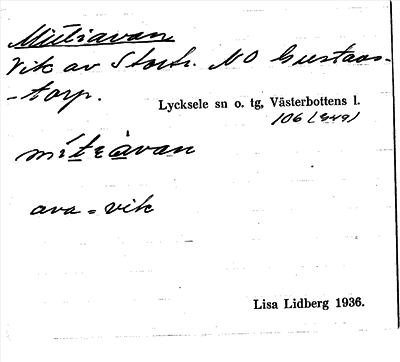 Mitträvan
Vik av Stortr. NO Gustavs-
-torp.
Lycksele sn o. tg, Västerbottens l.
106
mítràvan
ava = vik
Lisa Lidberg 1936.